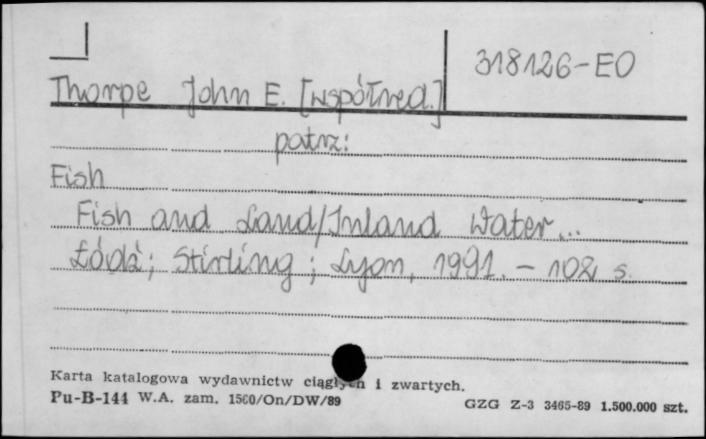 318126-EO
Thorpe John E. [współred.]
patrz:
Fish
Fish and Land/Inland Water...
Łódź; Stirling; Lyon, 1991. - 102 s.
Karta katalogowa wydawnictw ciągłych i zwartych.
Pu-B-144 W.A. zam. 1560/On/DW/89 GZG Z-3 3465-89 1.500.000 szt.